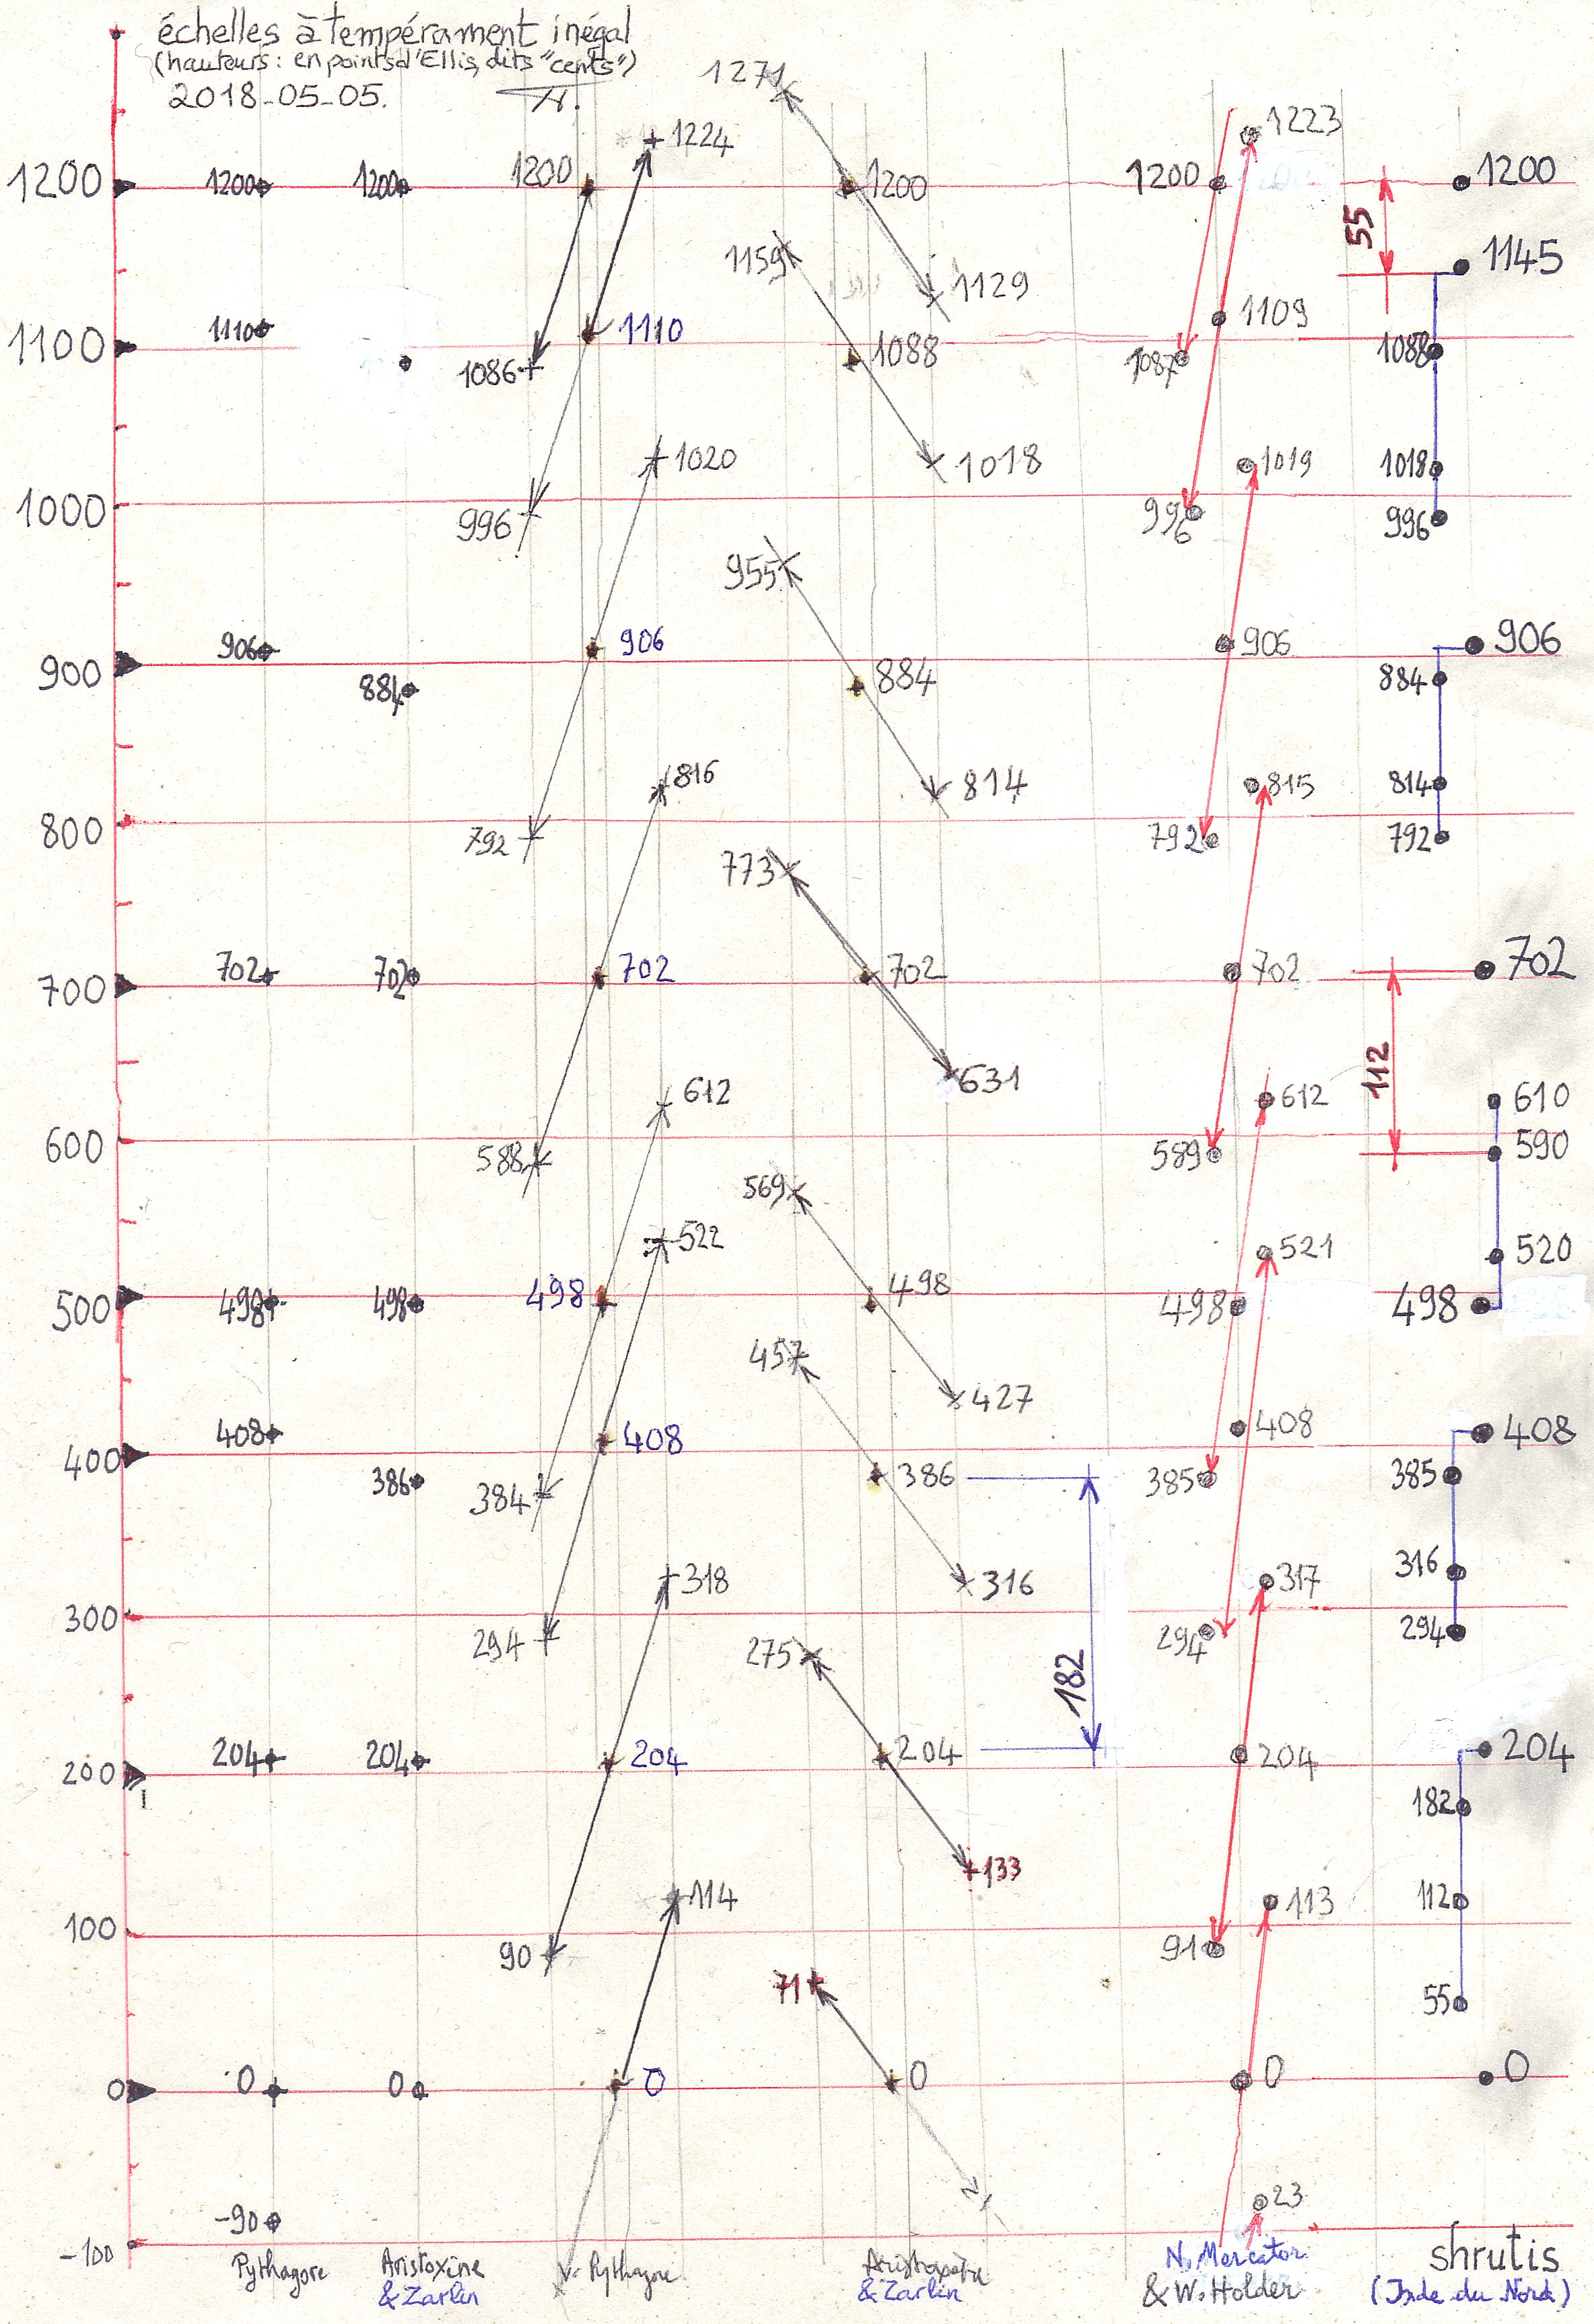 échelles à tempérament inégal
(hauteurs : en points d'Ellis, dits "cents")
2018-05-05.
1271
1224
1223
1200 1200 1200 1200 1200 1200 1200
55
1159
1145
1129
1110 1110 1109
1100
1086 1088 1087 1088
1020 1018 1019 1018
1000
996 996 996
955
906 906 906 906
900
884 884 884
816 814 815 814
800
792 792 792
773
702 702 702 702 702 702
700
631
112
612 612 610
600
588 589 590
569
522 521 520
500
498 498 498 498 498 498
457
427
408 408 408 408
400
386 384 386 385 385
318 316 317 316
300
294 294 294
275
182
204 204 204 204 204 204
200
182
133
114 113 112
100
90 91
71
55
0 0 0 0 0 0 0
23
-90
-100
Pythagore
Aristoxène
& Zarlin
Pythagore
& Zarlin
N. Mercator
& W. Holder
shrutis
(Inde du Nord)